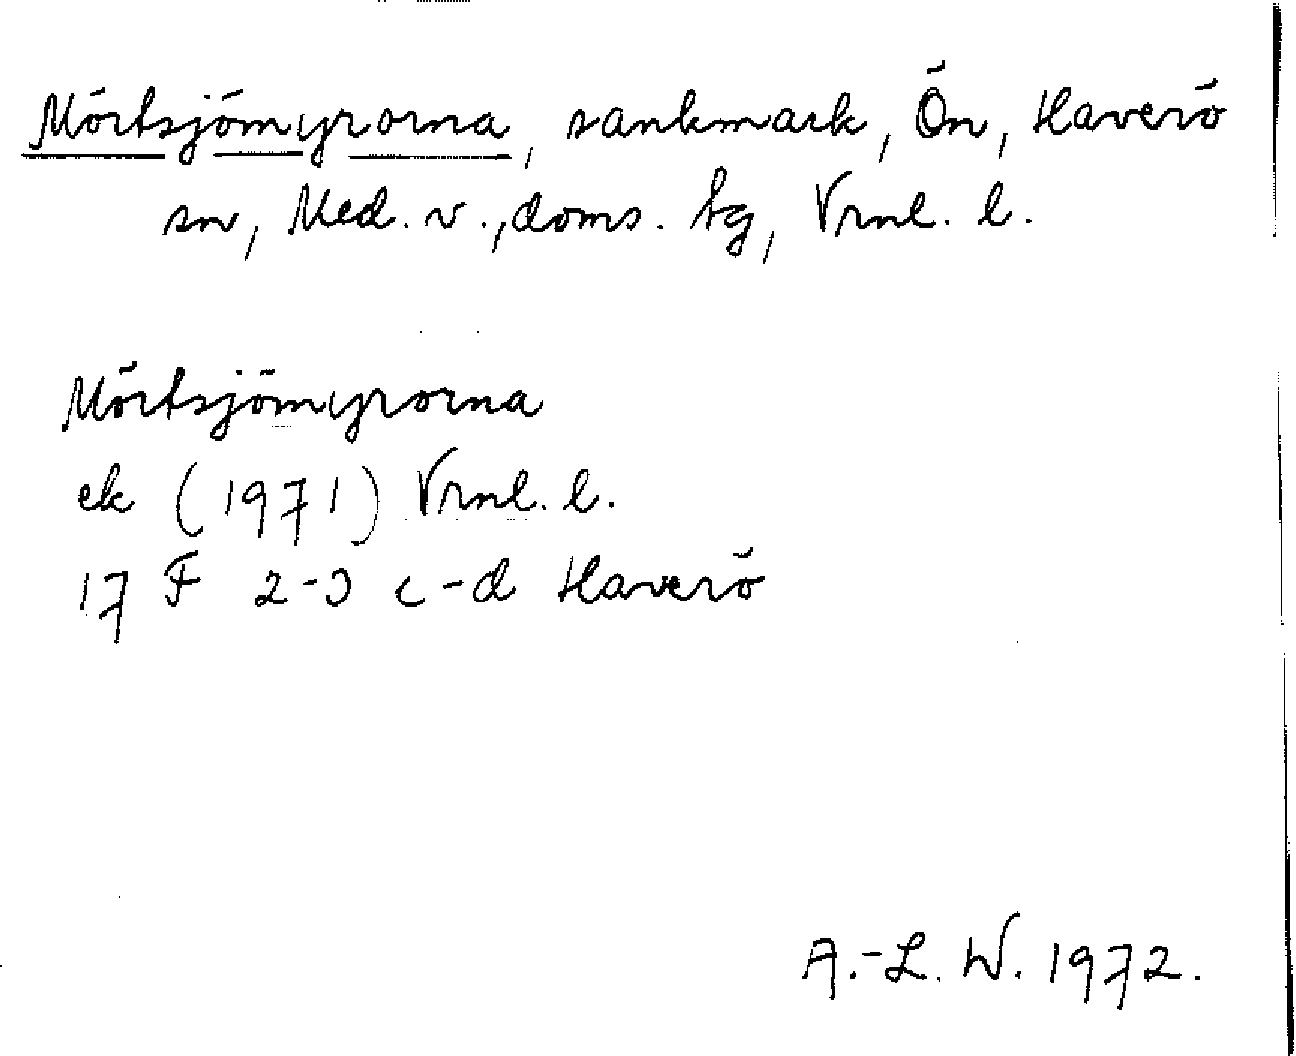 Mörtsjömyrorna, sankmark, Ön, Haverö
sn, Med. v., doms. tg, Vrnl. l.
Mörtsjömyrorna
ek (1971) Vrnl. l.
17 F 2-3 c-d Haverö
A.-L. W. 1972.